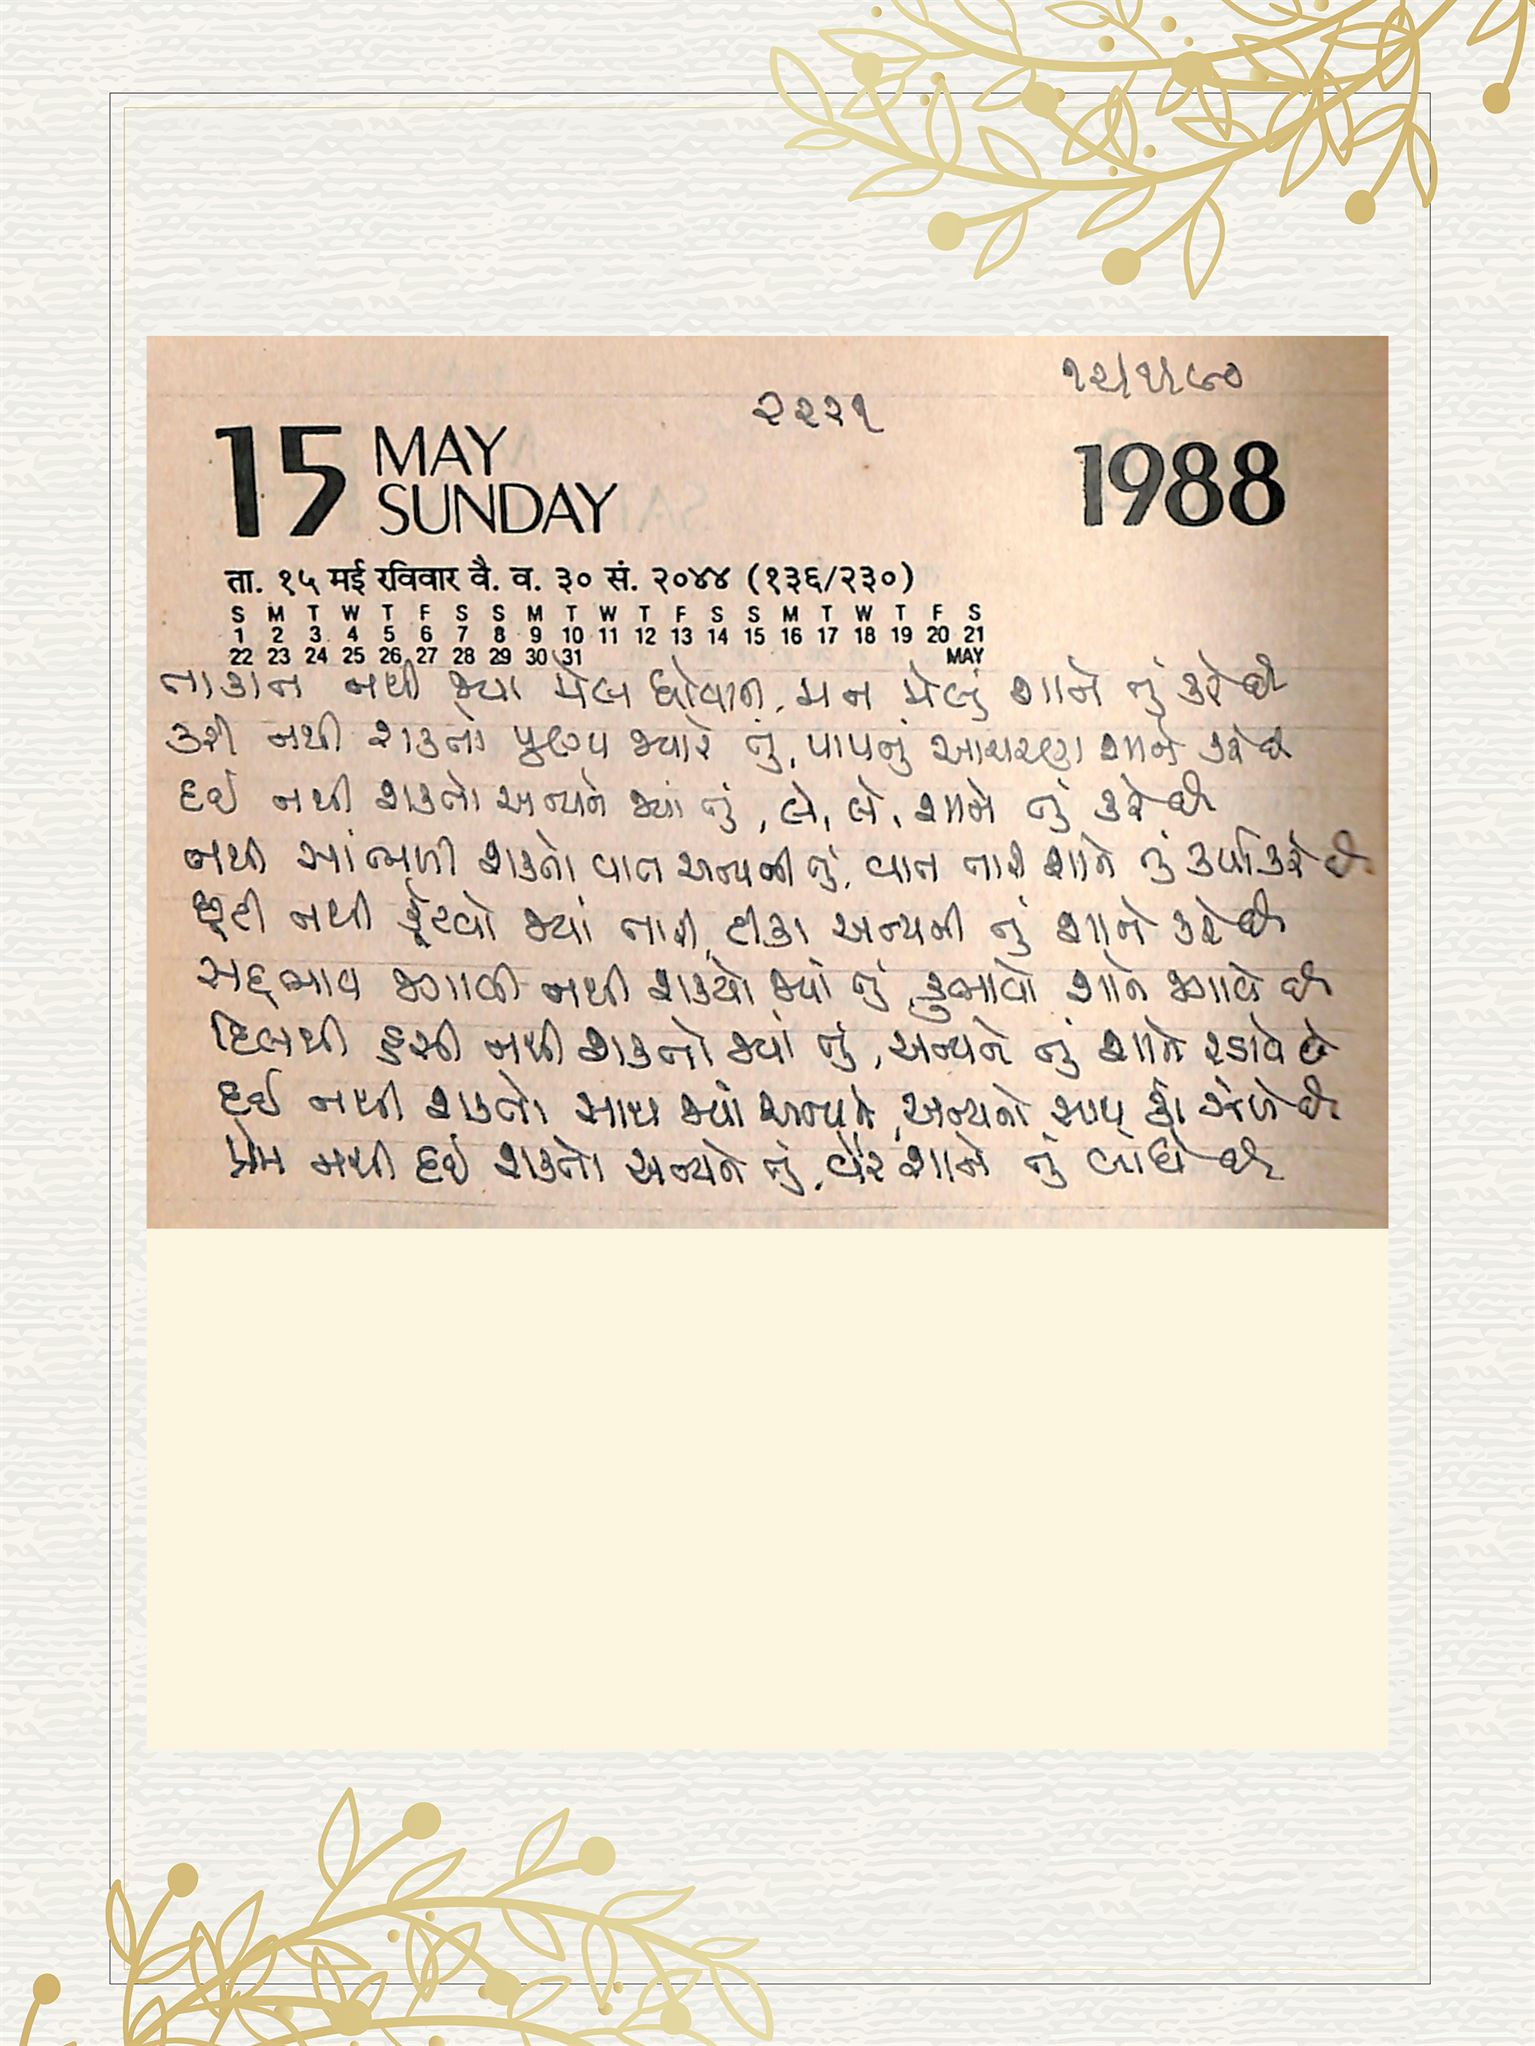 ૧૨/૧/૯૦
૨૨૨૧
15 MAY SUNDAY 1988
ता. १५ मई रविवार वै. व. ३० सं. २०४४ (१३६/२३०)
S M T W T F S S M T W T F S S M T W T F S
1 2 3 4 5 6 7 8 9 10 11 12 13 14 15 16 17 18 19 20 21
22 23 24 25 26 27 28 29 30 31 MAY
તાકાત નથી જ્યાં મેલ ધોવાની, મન મેલું શાને તું કરે છે
કરી નથી શકતો પુણ્ય જ્યારે તું, પાપનું આચરણ શાને કરે છે
દઈ નથી શકતો અન્યને જ્યાં તું, લે, લે, શાને તું કરે છે
નથી સાંભળી શકતો વાત અન્યની તું, વાત તારી શાને તું કર્યા કરે છે
છૂટી નથી કૂટેવો જ્યાં તારી, ટીકા અન્યની તું શાને કરે છે
સદ્દભાવ જગાવી નથી શક્યો જ્યાં તું, કુભાવો શાને જગાવે છે
દિલથી હસી નથી શકતો જ્યાં તું, અન્યને તું શાને રડાવે છે
દઈ નથી શકતો સાથ જ્યાં અન્યને, અન્યનો સાથ શેં મળે છે
પ્રેમ નથી દઈ શકતો અન્યને તું, વેર શાને તું બાંધે છે